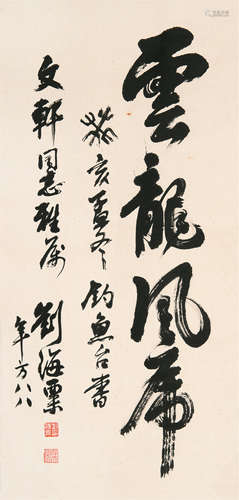 雲龍風虎
癸亥孟冬釣魚台書
文軒同志雅屬
劉海粟
年方八八